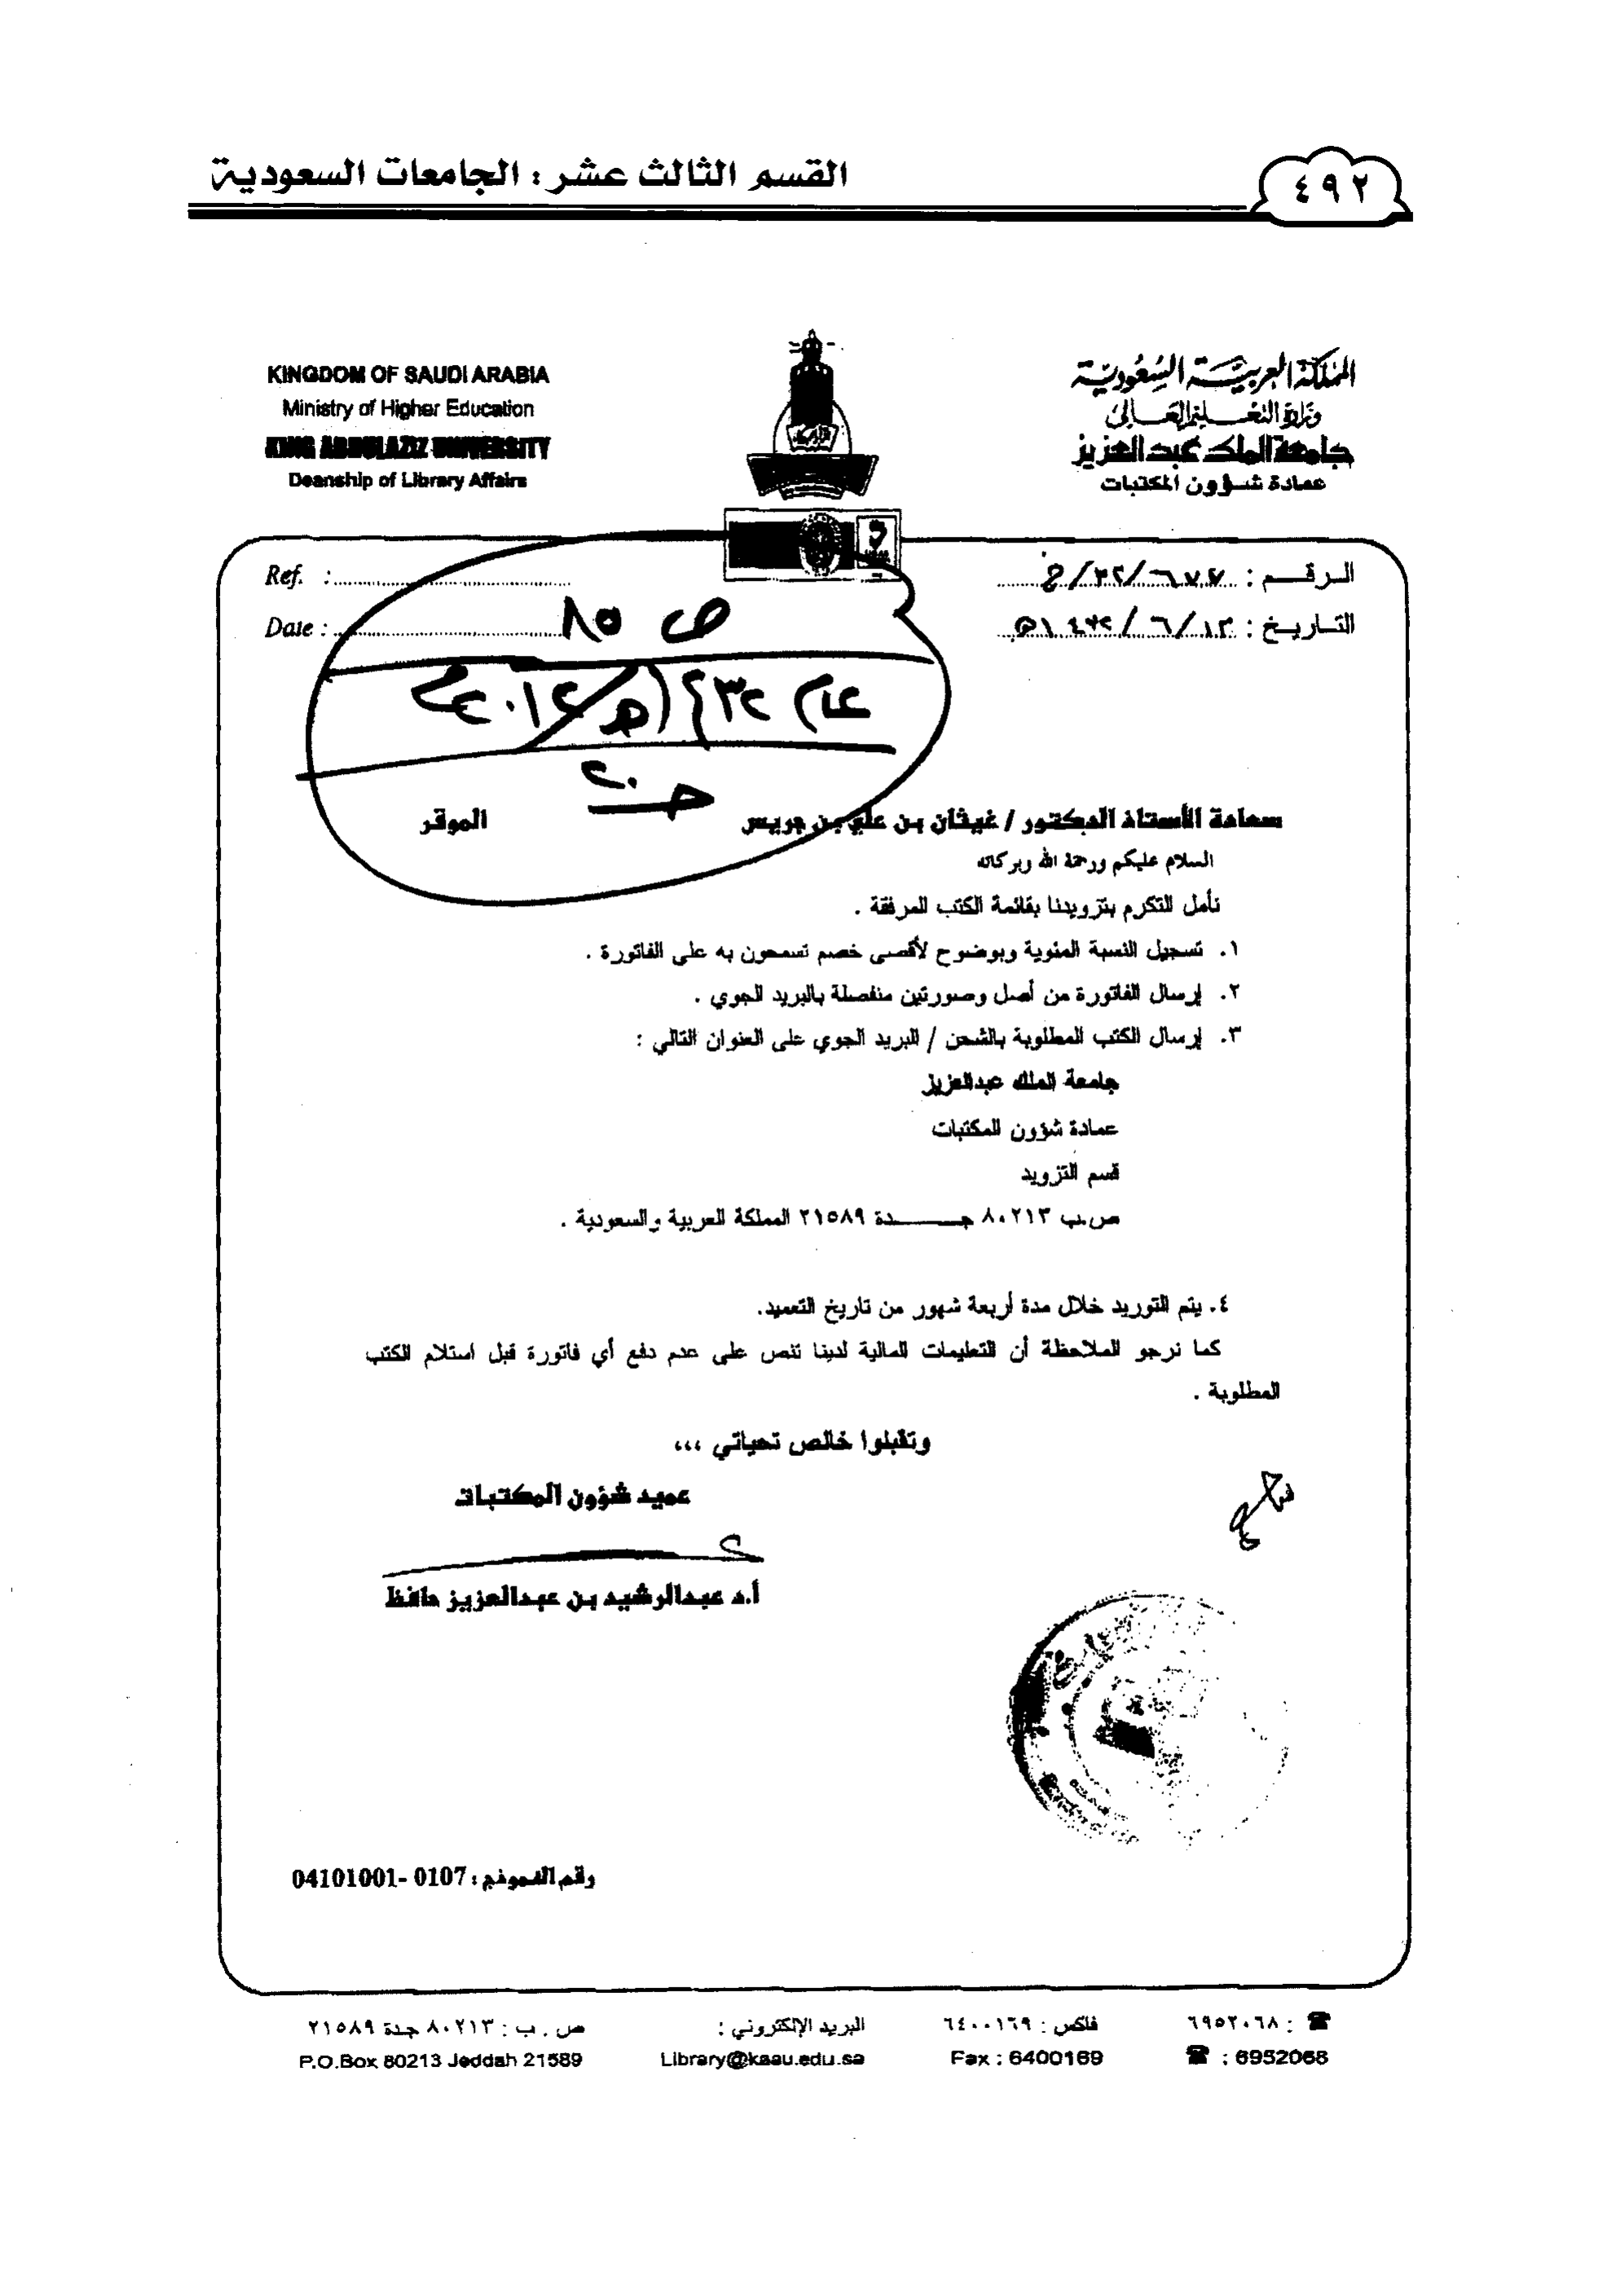 القسم الثالث عشر: الجامعات السعودية
٤٩٢
KINGDOM OF SAUDI ARABIA
Ministry of Higher Education
KING ABDULAZIZ UNIVERSITY
Deanship of Library Affairs
المملكة العربية السعودية
وزارة التعليم العالي
جامعة الملك عبد العزيز
عمادة شؤون المكتبات
Ref. :
Date :
الرقم :
التاريخ :
ص ٨٥
عام
سعادة الأستاذ الدكتور / غيثان بن علي بن جريس الموقر
السلام عليكم ورحمة الله وبركاته
نأمل التكرم بتزويدنا بقائمة الكتب المرفقة .
١. تسجيل النسبة المئوية وبوضوح لأقصى خصم تسمحون به على الفاتورة .
٢. إرسال الفاتورة من أصل وصورتين منفصلة بالبريد الجوي .
٣. إرسال الكتب المطلوبة بالشحن / البريد الجوي على العنوان التالي :
جامعة الملك عبدالعزيز
عمادة شؤون المكتبات
قسم التزويد
ص.ب ٨٠٢١٣ جـــــــدة ٢١٥٨٩ المملكة العربية والسعودية .
٤. يتم التوريد خلال مدة أربعة شهور من تاريخ التعميد.
كما نرجو الملاحظة أن التعليمات المالية لدينا تنص على عدم دفع أي فاتورة قبل استلام الكتب
المطلوبة .
وتقبلوا خالص تحياتي ،،،
عميد شؤون المكتبات
أ.د عبدالرشيد بن عبدالعزيز حافظ
رقم النموذج : 0107 -04101001
☎ : ٦٩٥٢٠٦٨
فاكس : ٦٤٠٠١٦٩
البريد الإلكتروني :
ص . ب : ٨٠٢١٣ جدة ٢١٥٨٩
☎ : 6952068
Fax : 6400169
Library@kaau.edu.sa
P.O.Box 80213 Jeddah 21589